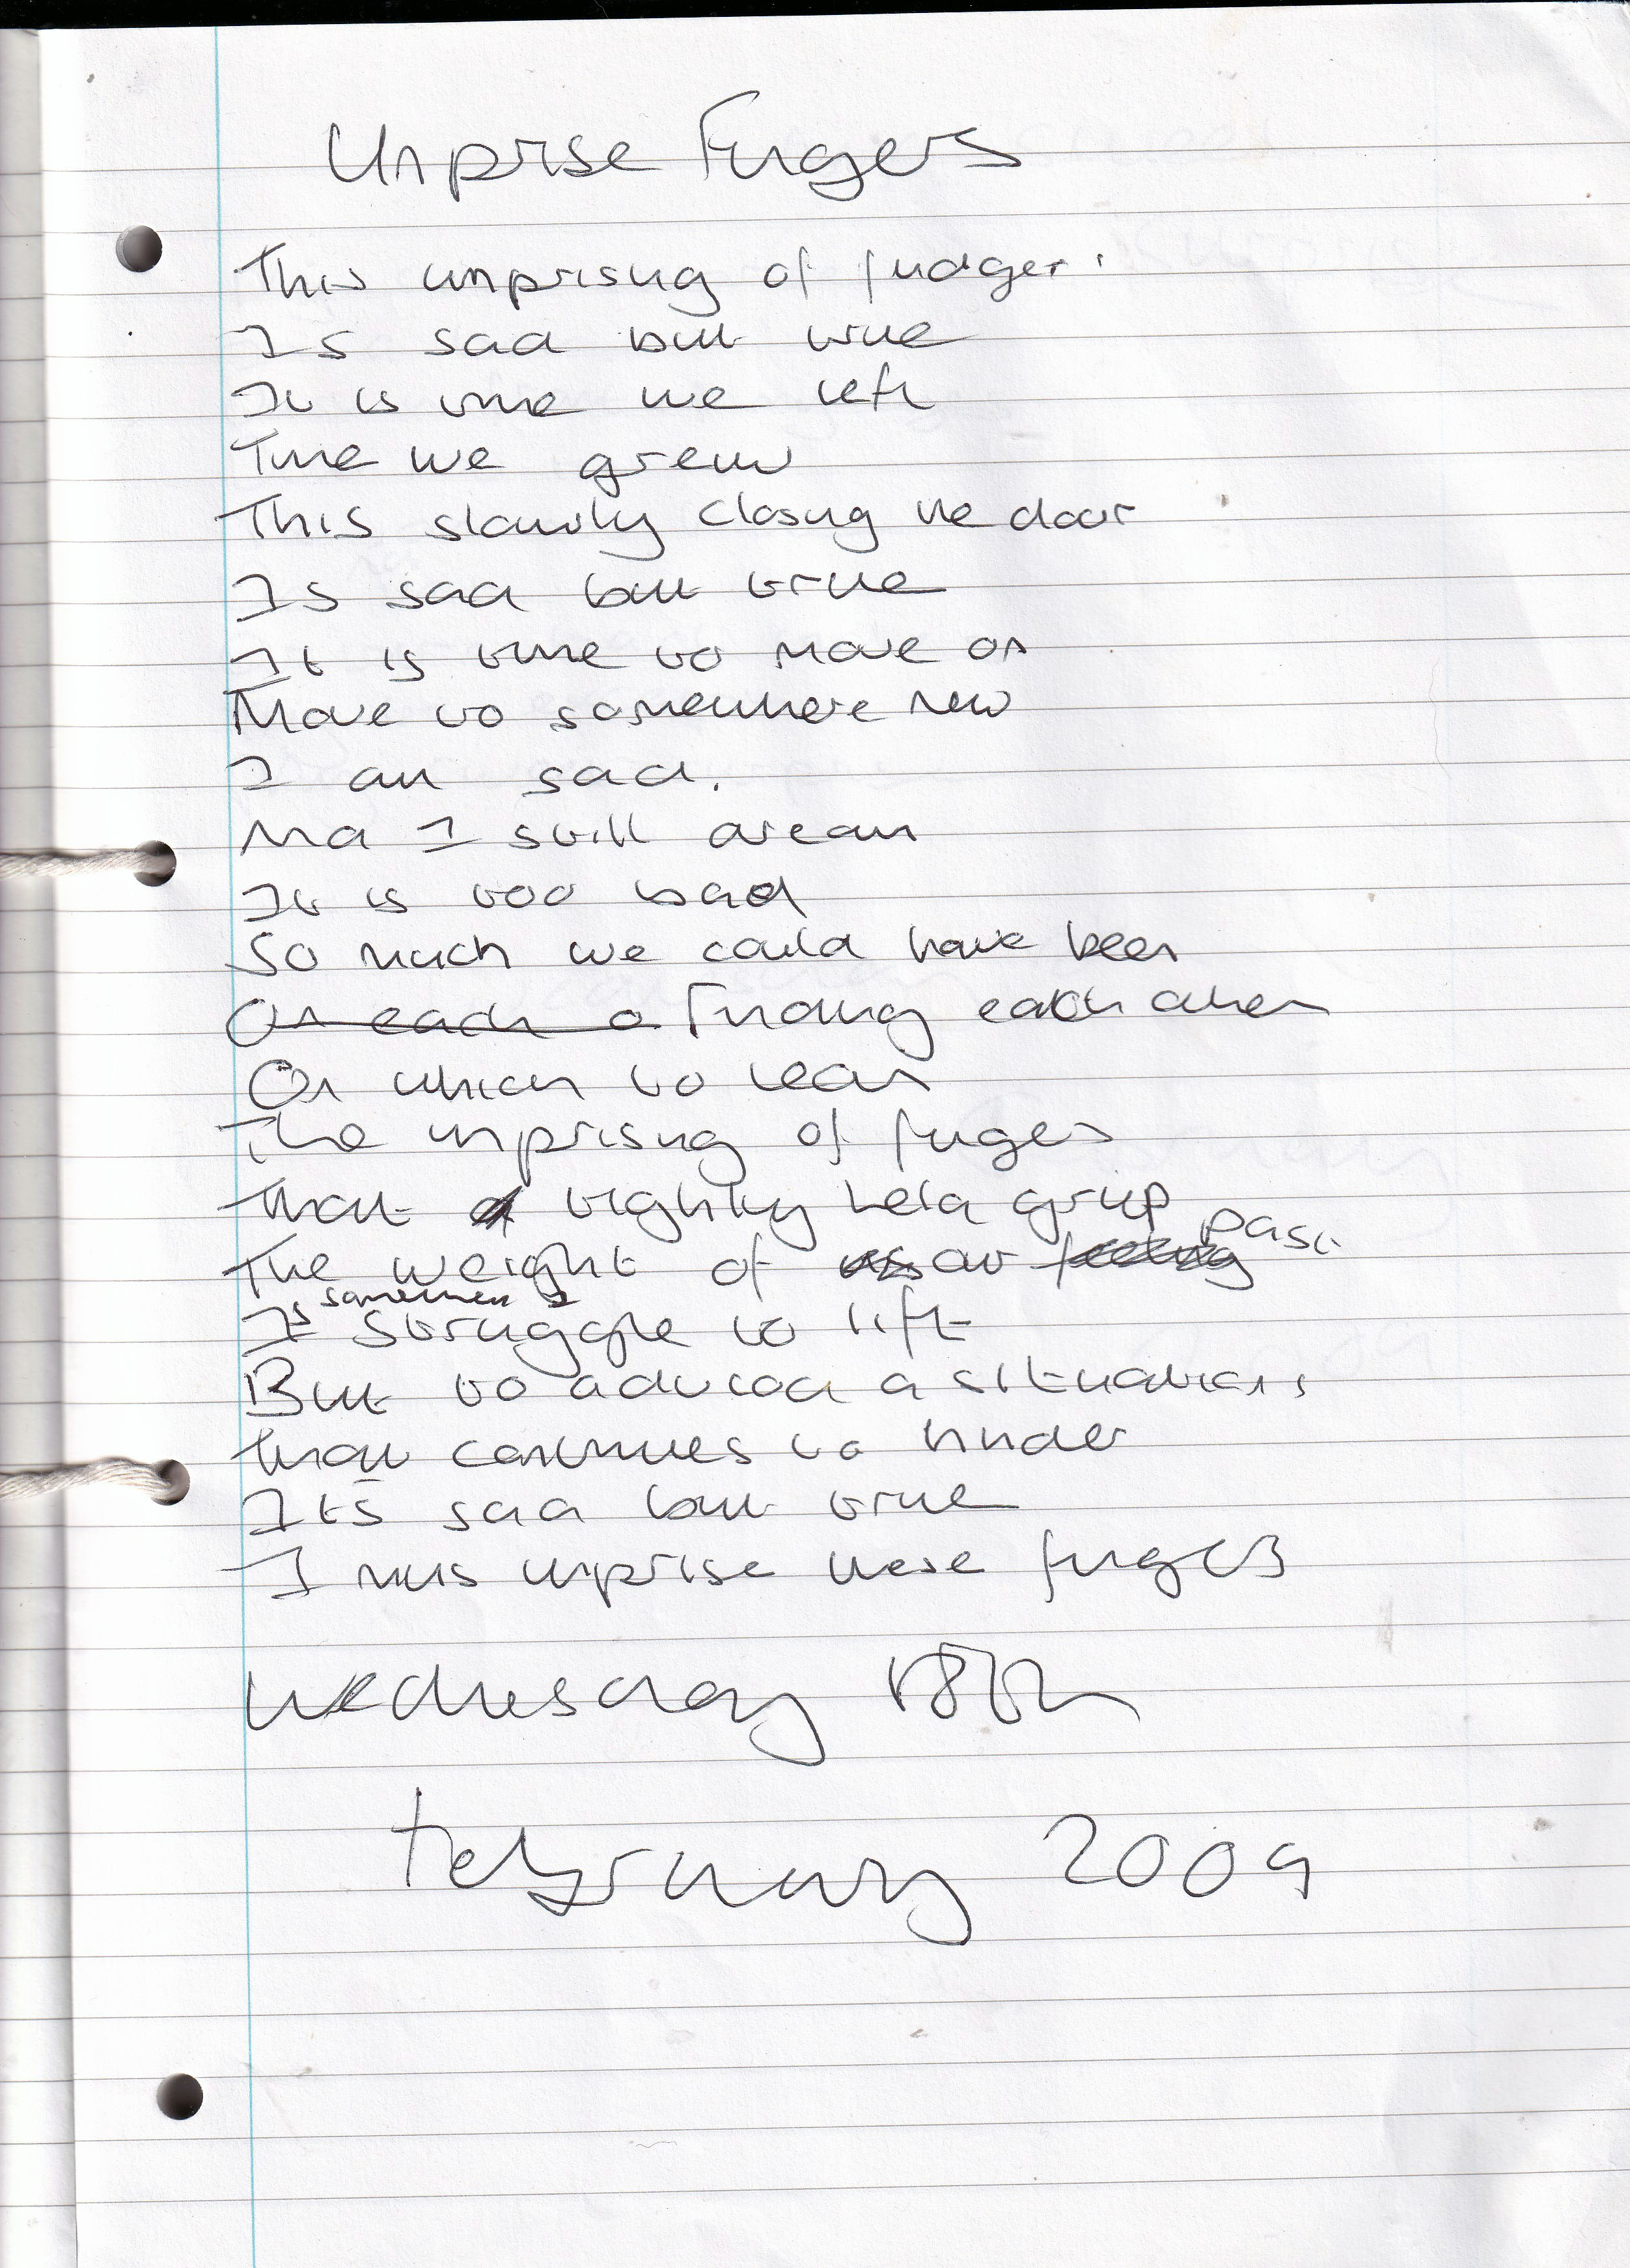 Unprise Fingers
This unprising of fudgers
Is sad but true
It is time we left
Time we grew
This slowly closing the door
Is sad but true
It is time to move on
Move to somewhere new
I am sad.
And I still dream
It is too bad
So much we could have been
On each o Finding each other
On which to lean
The unprising of fingers
That tightly held grip
The weight of our past
Is sometimes a struggle to lift
But to avoid a situation,
that continues to hinder
Its sad but true
I mus unprise these fingers
Wednesday 18th
February 2009